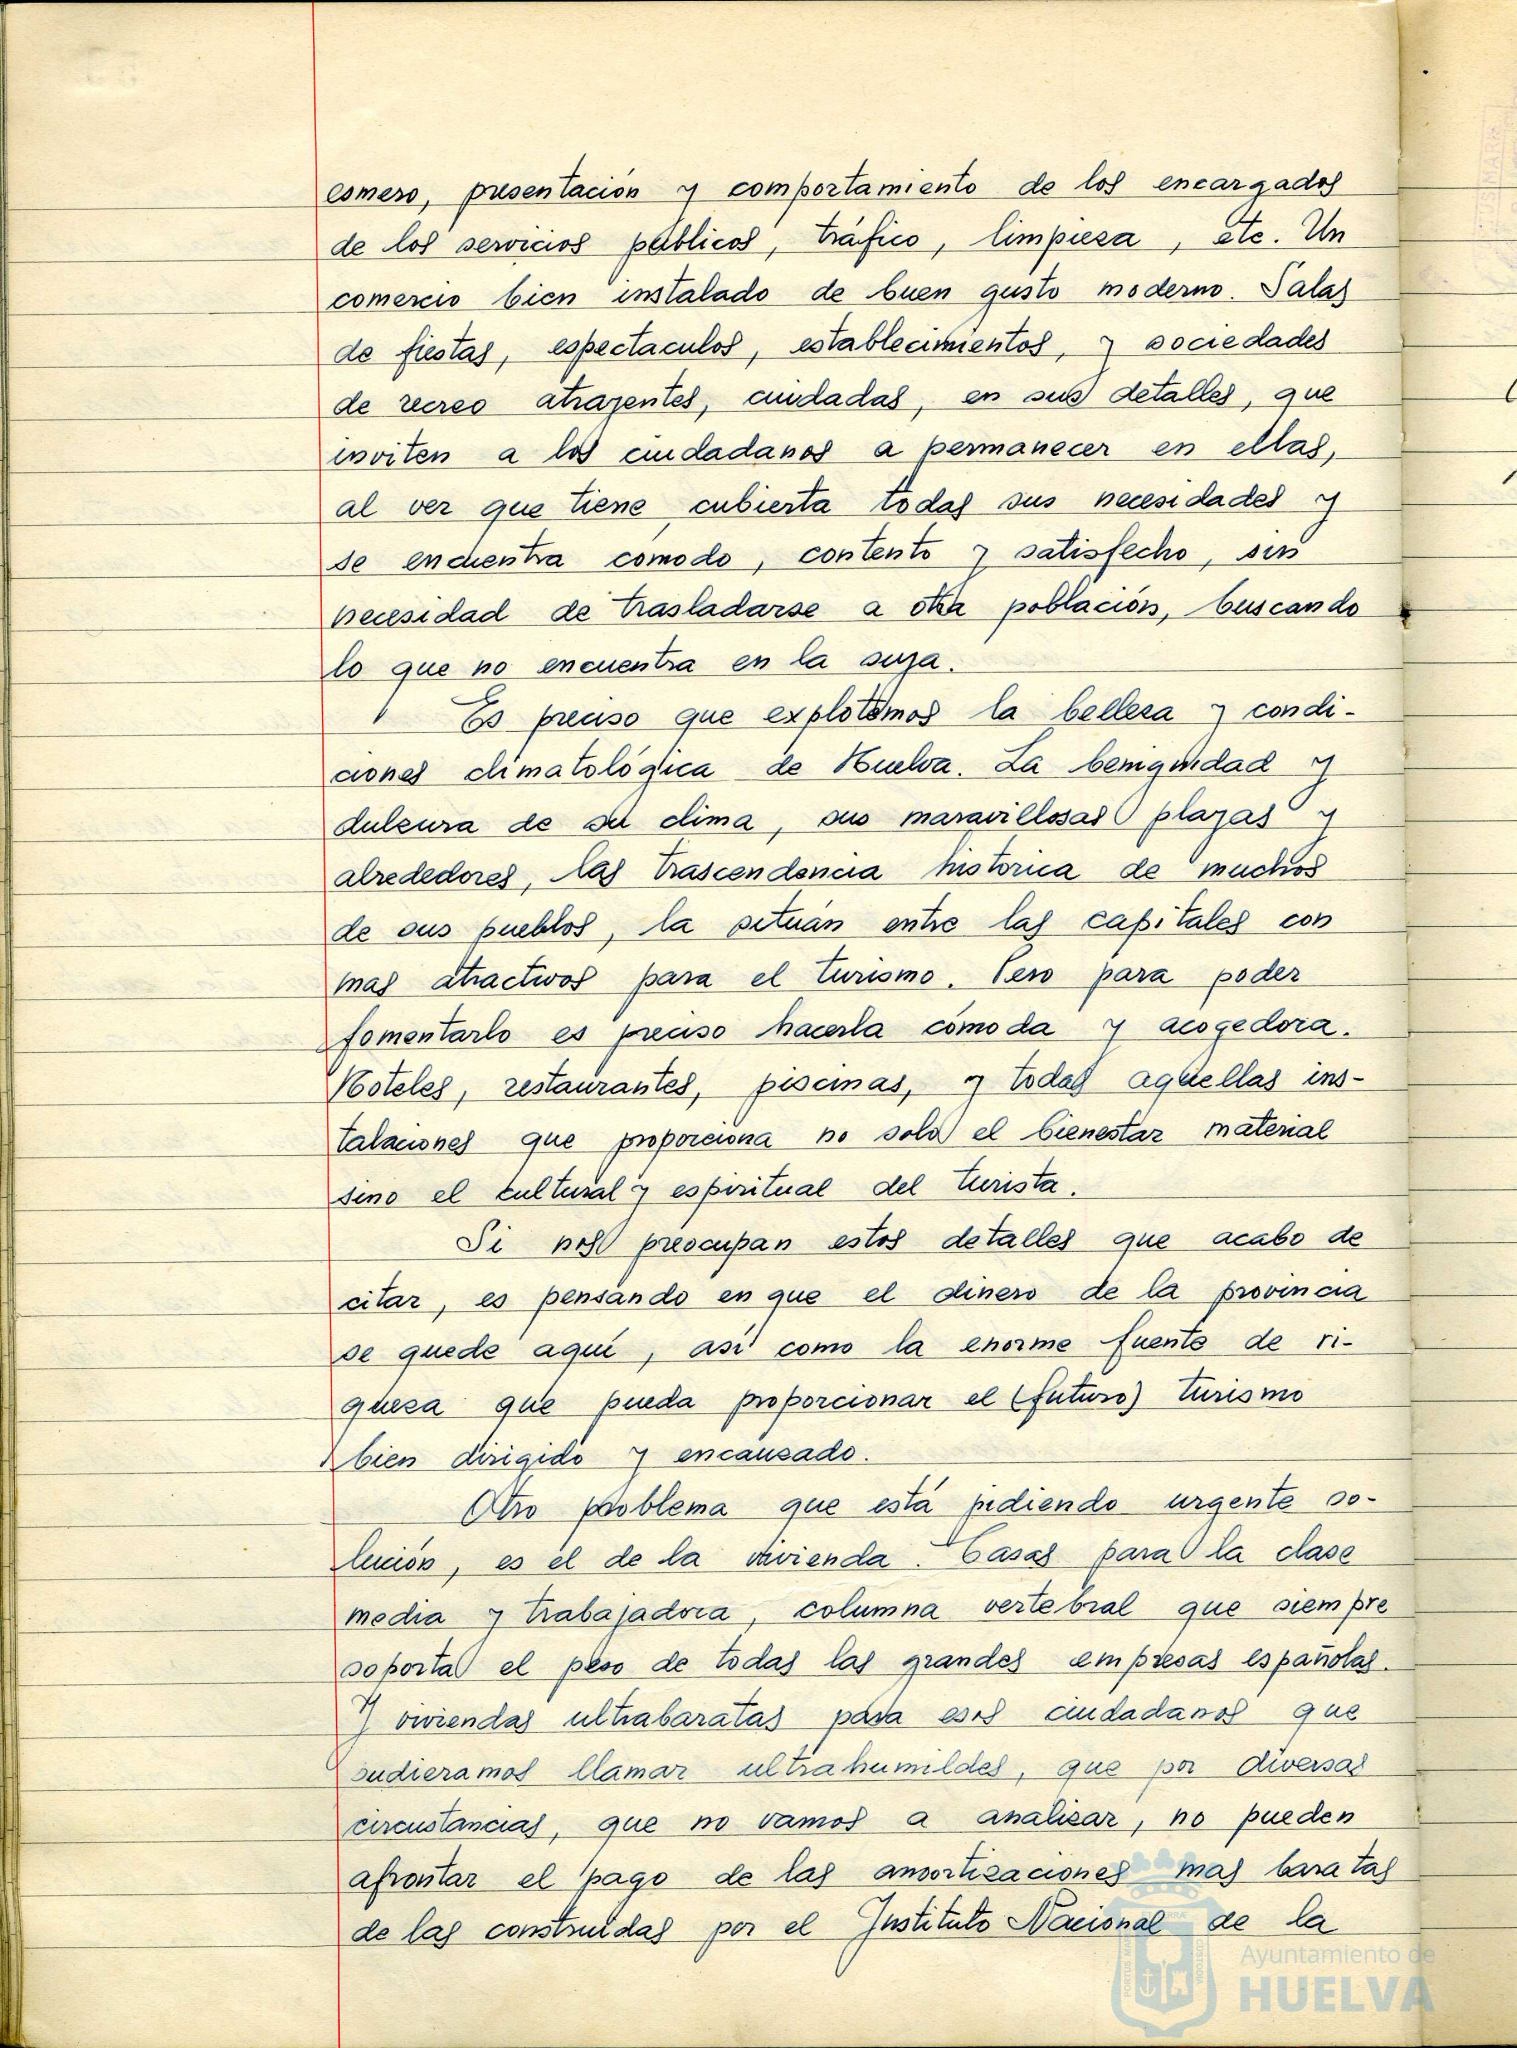 esmero, presentación y comportamiento de los encargados
de los servicios públicos, tráfico, limpieza, etc. Un
comercio bien instalado de buen gusto moderno. Salas
de fiestas, espectaculos, establecimientos, y sociedades
de recreo atrayentes, cuidadas, en sus detalles, que
inviten a los ciudadanos a permanecer en ellas,
al ver que tiene cubierta todas sus necesidades y
se encuentra cómodo, contento y satisfecho, sin
necesidad de trasladarse a otra población, buscando
lo que no encuentra en la suya.
Es preciso que explotemos la belleza y condi-
ciones climatológica de Huelva. La benignidad y
dulzura de su clima, sus maravillosas playas y
alrededores, las trascendencia historica de muchos
de sus pueblos, la sitúan entre las capitales con
mas atractivos para el turismo. Pero para poder
fomentarlo es preciso hacerla cómoda y acogedora.
Hoteles, restaurantes, piscinas, y todas aquellas ins-
talaciones que proporciona no solo el bienestar material
sino el cultural y espiritual del turista.
Si nos preocupan estos detalles que acabo de
citar, es pensando en que el dinero de la provincia
se quede aquí, así como la enorme fuente de ri-
queza que pueda proporcionar el (futuro) turismo
bien dirigido y encauzado.
Otro problema que está pidiendo urgente so-
lución, es el de la vivienda. Casas para la clase
media y trabajadora, columna vertebral que siempre
soporta el peso de todas las grandes empresas españolas.
Y viviendas ultrabaratas para esos ciudadanos que
pudieramos llamar ultrahumildes, que por diversas
circustancias, que no vamos a analizar, no pueden
afrontar el pago de las amortizaciones mas baratas
de las construidas por el Instituto Nacional de la
Ayuntamiento de
HUELVA